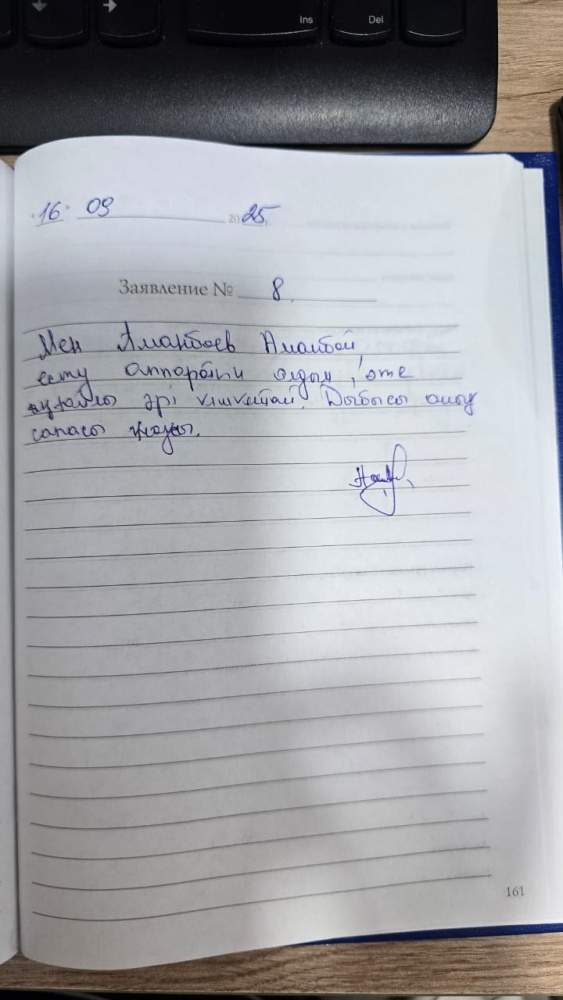 Ins
Del
"16" 09 2025
Заявление № 8.
Мен Аманбаев Аманбай,
есту аппаратын алдым, өте
ыңғайлы әрі кішкентай. Дыбысы ашық
сапасы жақсы.
161